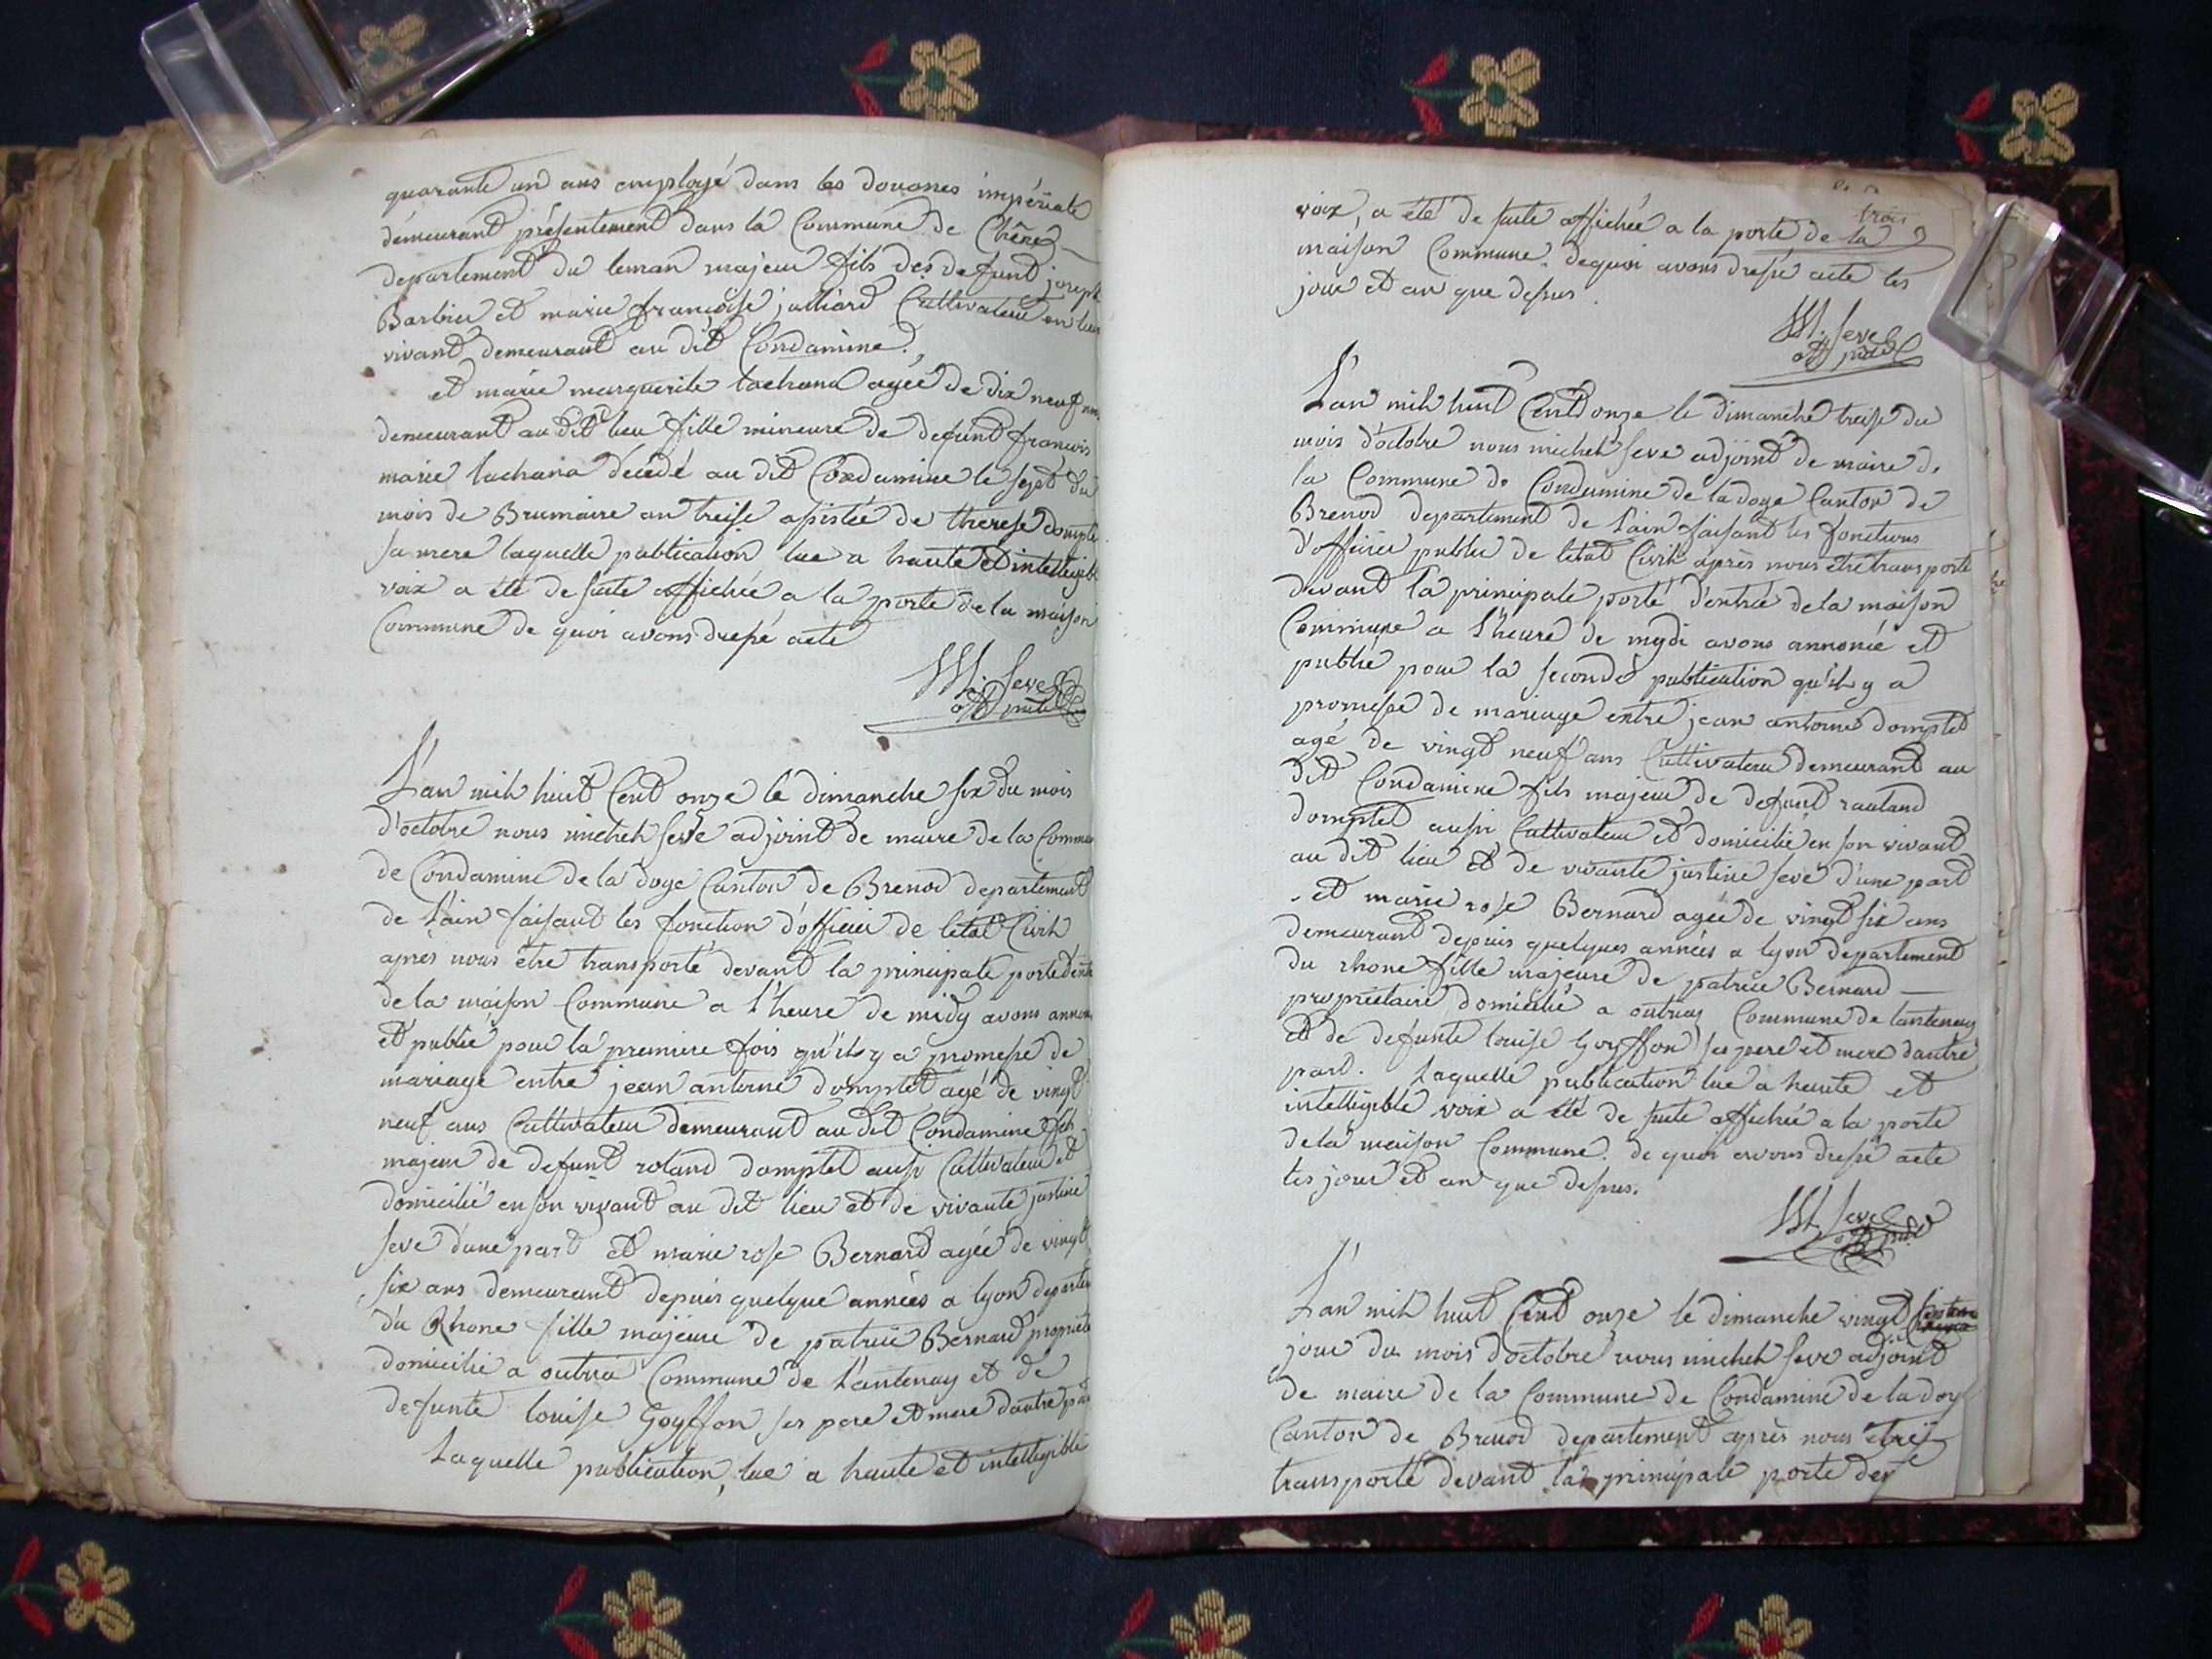 quarante un ans employé dans les douanes impériale
demeurant présentement dans la Commune de
departement du leman majeur fils des defunt joseph
Barbier et marie françoise julliard Cultivateur en leur
vivant demeurant au dit Condamine.
et marie marguerite lachana agée de dix neuf ans
demeurant au dit lieu fille mineure de defunt francois
marie lachana décédé au dit Condamine le sept du
mois de Brumaire an treise assistée de therese domptet
sa mere laquelle publication lue a haute et intelligible
voix a été de suite affichée a la porte de la maison
Commune de quoi avons dressé acte
M. Seve
off public
L'an mil huit Cent onze le dimanche six du mois
d'octobre nous michel Seve adjoint de maire de la Commune
de Condamine de la doye Canton de Brenod departement
de l'ain faisant les fonction d'officier de letat Civil
après nous être transporté devant la principale porte d'entrée
de la maison Commune a l'heure de midy avons annoncé
et publié pour la premiere fois qu'il y a promesse de
mariage entre jean antoine domptet agé de vingt
neuf ans Cultivateur demeurant au dit Condamine fils
majeur de defunt roland domptet aussi Cultivateur et
domicilié en son vivant au dit lieu et de vivante justine
seve d'une part et marie rose Bernard agée de vingt
six ans demeurant depuis quelque années a lyon departement
du Rhone fille majeure de patrice Bernard proprietaire
domicilié a outria Commune de lantenay et de
defunte louise Goyffon ses pere et mere dautre part
Laquelle publication, lue a haute et intelligible
trois
voix, a été de suite affichée a la porte de la
maison Commune. dequoi avons dressé acte les
jour et an que dessus.
M. Seve
off public
L'an mil huit Cent onze le dimanche treise du
mois d'octobre nous michel seve adjoint de maire de
la Commune de Condamine de la doye Canton de
Brenod departement de l'ain faisant les fonctions
d'officier public de letat Civil après nous être transporté
devant la principale porte d'entrée de la maison
Commune a l'heure de mydi avons annoncé et
publié pour la seconde publication qu'il y a
promesse de mariage entre jean antoine domptet
agé de vingt neuf ans Cultivateur demeurant au
dit Condamine fils majeur de defunt rauland
domptet aussi Cultivateur et domicilié en son vivant
au dit lieu et de vivante justine seve d'une part
et marie rose Bernard agée de vingt six ans
demeurant depuis quelques années a lyon departement
du rhone fille majeure de patrice Bernard
proprietaire domicilié a outriaz Commune de lantenay
et de defunte louise Goyffon ses pere et mere dautre
part. Laquelle publication lue a haute et
intelligible voix a été de suite affichée a la porte
de la maison Commune. de quoi avons dressé acte
les jour et an que dessus.
M. Seve
off public
L'an mil huit Cent onze le dimanche vingt
jour du mois d'octobre nous michel seve adjoint
de maire de la Commune de Condamine de la doy
Canton de Brenod departement après nous être
transporté devant la principale porte de